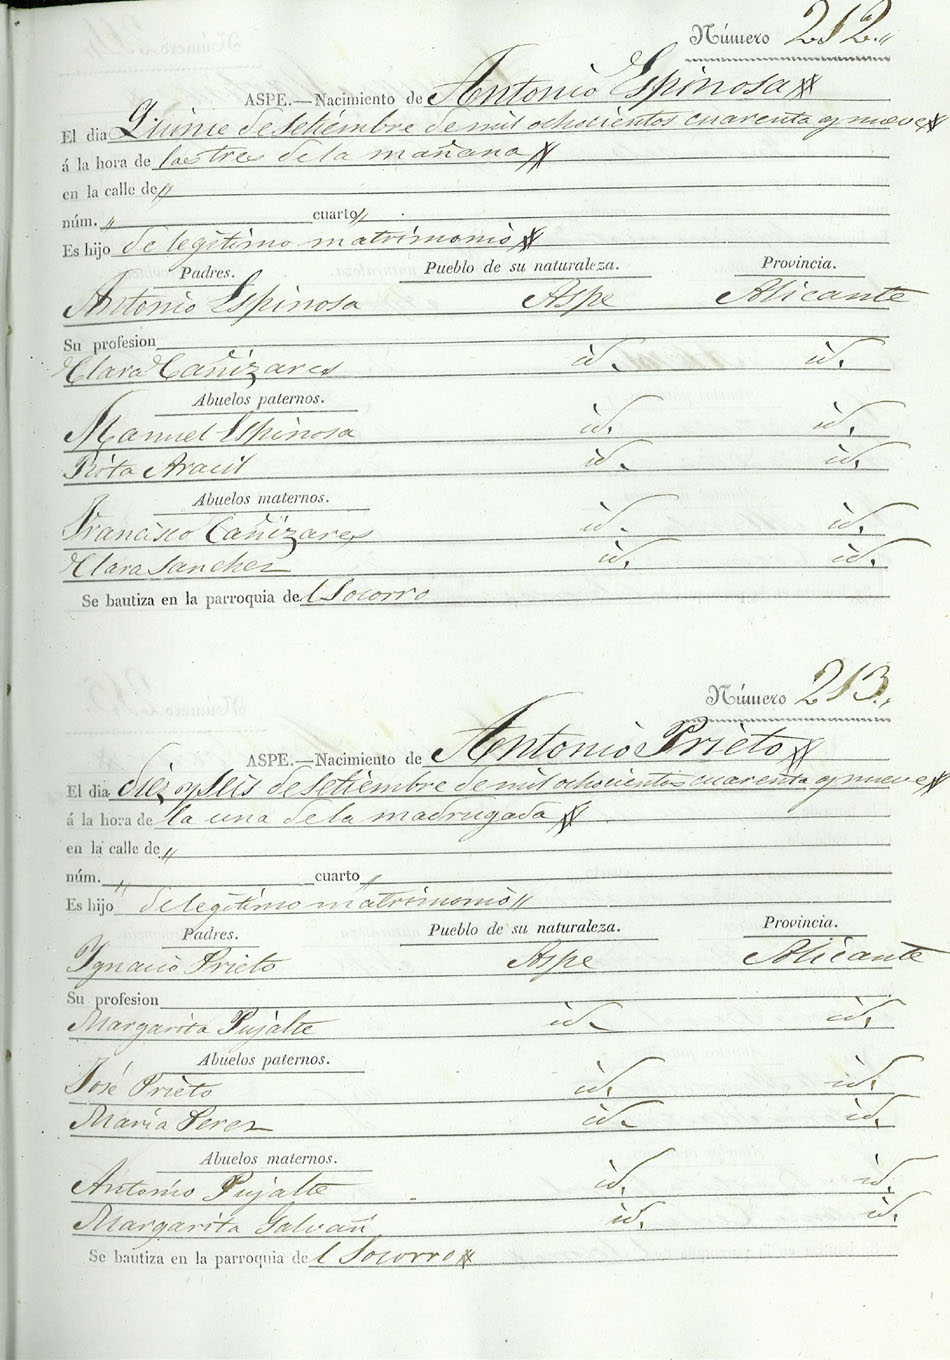 Número 212.,,
ASPE.—Nacimiento de Antonio Espinosa
El dia Quince de Setiembre de mil ochocientos cuarenta y nueve
á la hora de las tres de la mañana
en la calle de „
núm. „ cuarto „
Es hijo de legitimo matrimonio
Padres. Pueblo de su naturaleza. Provincia.
Antonio Espinosa Aspe Alicante
Su profesion
Clara Cañizares id. id.
Abuelos paternos.
Manuel Espinosa id. id.
Rita Aracil id. id.
Abuelos maternos.
Francisco Cañizares id. id.
Clara Sanchez id. id.
Se bautiza en la parroquia del Socorro
Número 213.,,
ASPE.—Nacimiento de Antonio Prieto
El dia diez y seis de Setiembre de mil ochocientos cuarenta y nueve
á la hora de la una de la madrugada
en la calle de „
núm. „ cuarto „
Es hijo de legitimo matrimonio „
Padres. Pueblo de su naturaleza. Provincia.
Ygnacio Prieto Aspe Alicante
Su profesion
Margarita Pujalte id. id.
Abuelos paternos.
José Prieto id. id.
Maria Perez id. id.
Abuelos maternos.
Antonio Pujalte id. id.
Margarita Galvañ id. id.
Se bautiza en la parroquia del Socorro